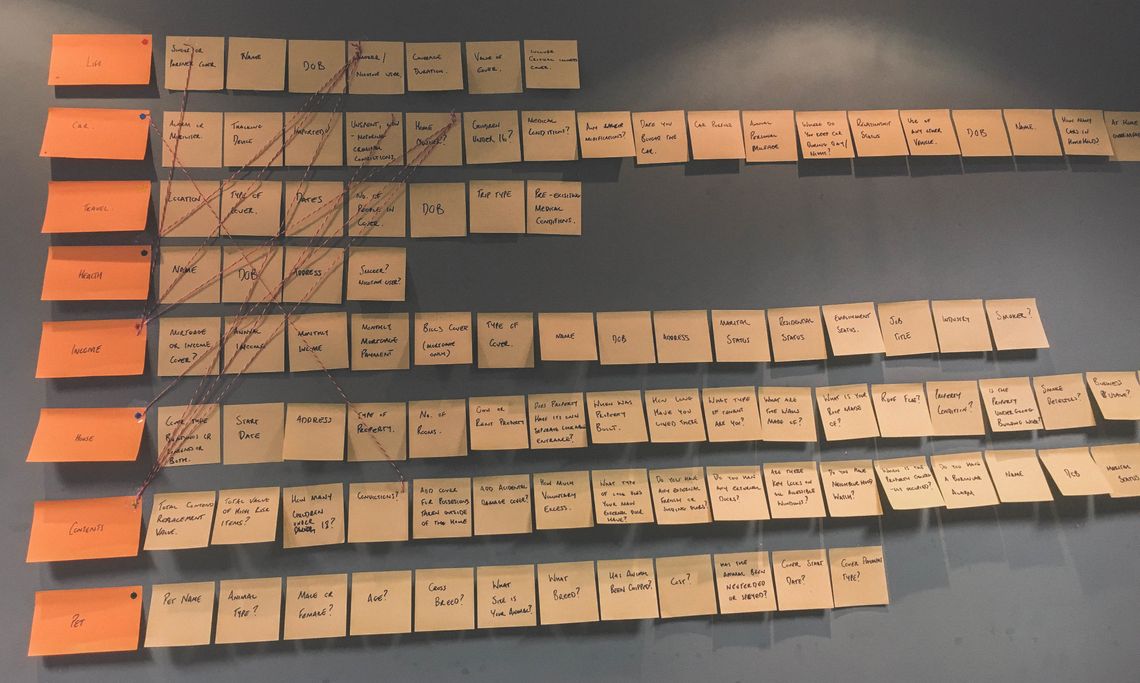 LIFE
SINGLE OR
PARTNER COVER
NAME
DOB
SMOKER/
NICOTINE USER.
COVERAGE
DURATION.
VALUE OF
COVER.
INCLUDE
CRITICAL ILLNESS
COVER.
CAR.
ALARM OR
IMMOBILISER.
TRACKING
DEVICE
IMPORTED?
UNSPENT, NON
-MOTORING
CRIMINAL
CONVICTIONS.
HOME
OWNER?
CHILDREN
UNDER 16?
MEDICAL
CONDITIONS?
ANY
MODIFICATIONS?
DATE YOU
BOUGHT THE
CAR.
CAR PURPOSE
ANNUAL
PERSONAL
MILEAGE
WHERE DO
YOU KEEP CAR
DURING DAY/
NIGHT?
RELATIONSHIP
STATUS
USE OF
ANY OTHER
VEHICLE.
DOB
NAME.
HOW MANY
CARS IN
HOUSEHOLD?
AT HOME
TRAVEL.
LOCATION
TYPE OF
COVER.
DATES
NO. OF
PEOPLE IN
COVER.
DOB
TRIP TYPE
PRE-EXISTING
MEDICAL
CONDITIONS.
HEALTH
NAME
DOB
ADDRESS
SMOKER?
NICOTINE USER?
INCOME
MORTGAGE
OR INCOME
COVER?
ANNUAL
INCOME
MONTHLY
INCOME
MONTHLY
MORTGAGE
PAYMENT
BILLS COVER
(MORTGAGE
ONLY)
TYPE OF
COVER.
NAME
DOB
ADDRESS
MARITAL
STATUS
RESIDENTIAL
STATUS
EMPLOYMENT
STATUS.
JOB
TITLE
INDUSTRY
SMOKER?
HOUSE
COVER TYPE
BUILDINGS OR
CONTENTS OR
BOTH.
START
DATE
ADDRESS
TYPE OF
PROPERTY.
NO. OF
ROOMS.
OWN OR
RENT PROPERTY
DOES PROPERTY
HAVE ITS OWN
SEPARATE LOCKABLE
ENTRANCE?
WHEN WAS
PROPERTY
BUILT.
HOW LONG
HAVE YOU
LIVED THERE
WHAT TYPE
OF TENANT
ARE YOU?
WHAT ARE
THE WALLS
MADE OF?
WHAT IS YOUR
ROOF MADE
OF?
ROOF FLAT?
PROPERTY
CONDITION?
IS THE
PROPERTY
UNDER GOING
BUILDING WORK?
SMOKE
DETECTORS?
BUSINESS
USAGE?
CONTENTS
TOTAL CONTENTS
REPLACEMENT
VALUE.
TOTAL VALUE
OF HIGH RISK
ITEMS?
HOW MANY
CHILDREN
UNDER
18?
CONVICTIONS?
ADD COVER
FOR POSSESSIONS
TAKEN OUTSIDE
OF THE HOME
ADD ACCIDENTAL
DAMAGE COVER?
HOW MUCH
VOLUNTARY
EXCESS.
WHAT TYPE
OF LOCK DOES
YOUR MAIN
EXTERNAL DOOR
HAVE?
DO YOU HAVE
ANY EXTERNAL
FRENCH OR
SLIDING DOORS?
DO YOU HAVE
ANY EXTERNAL
DOORS?
ARE THERE
KEY LOCKS ON
ALL ACCESSIBLE
WINDOWS?
DO YOU HAVE
NEIGHBOURHOOD
WATCH?
WHEN IS THE
PROPERTY
OCCUPIED?
DO YOU HAVE
A BURGULAR
ALARM
NAME
DOB
MARITAL
STATUS
PET
PET NAME
ANIMAL
TYPE?
MALE OR
FEMALE?
AGE?
CROSS
BREED?
WHAT
SIZE IS
YOUR ANIMAL?
WHAT
BREED?
HAS ANIMAL
BEEN CHIPPED?
COST?
HAS THE
ANIMAL BEEN
NEUTERED
OR SPAYED?
COVER START
DATE?
COVER PAYMENT
TYPE?